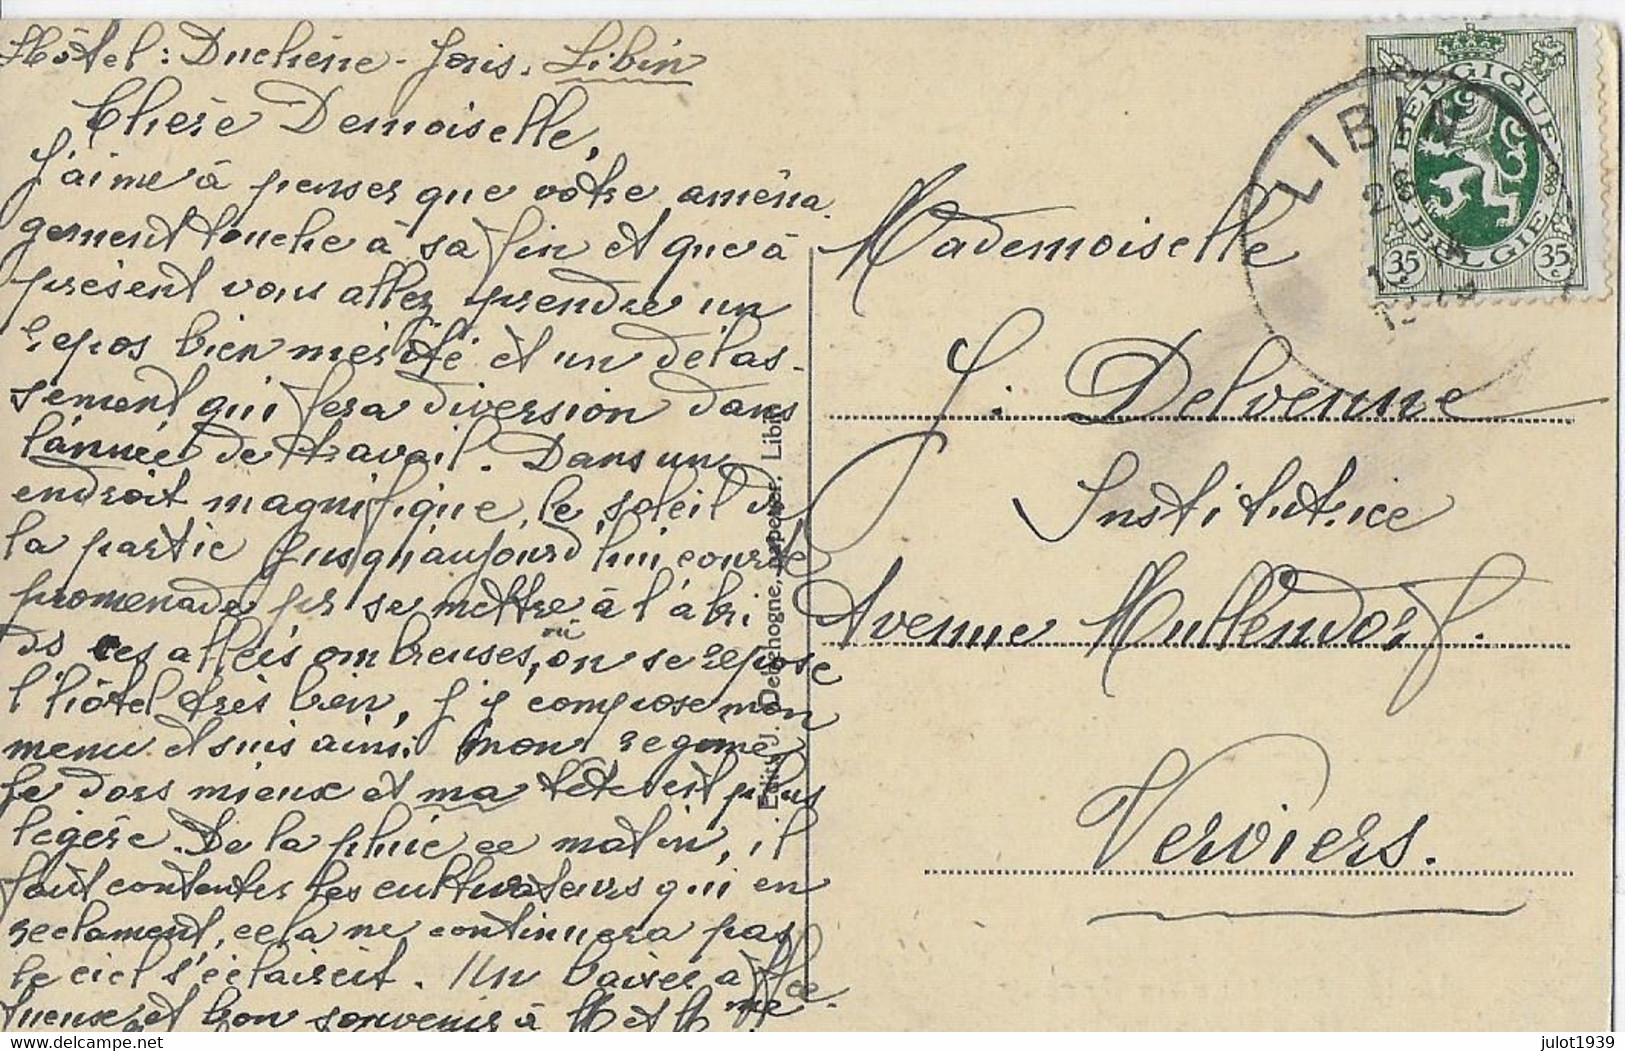 Hôtel : Duchêne - Joris. Libin
Chère Demoiselle,
J'aime à penser que vôtre aména
gement touche à sa fin et que à
présent vous allez prendre un
repos bien mérité et un délas-
sement qui fera diversion dans
l'année de travail. Dans un
endroit magnifique, le soleil de
la partie jusqu'aujourd'hui courte
promenade pr se mettre à l'abri
ds ces allées ombreuses, où on se repose
l'hôtel très bien, j'y compose mon
menu et suis ainsi mon régime
je dors mieux et ma tête est plus
légère. De la pluie ce matin, il
faut contenter les cultivateurs qui en
réclament, cela ne continuera pas
le ciel s'éclaircit. Un baiser affec
tueux et bon souvenir à M et Mme
Edit. J. Dechogne, Libin
LIBIN
BELGIQUE
BELGIE
35 c
35 c
Mademoiselle
J. Delvenne
Institutrice
Avenue Mullendorf.
Verviers.
julot1939